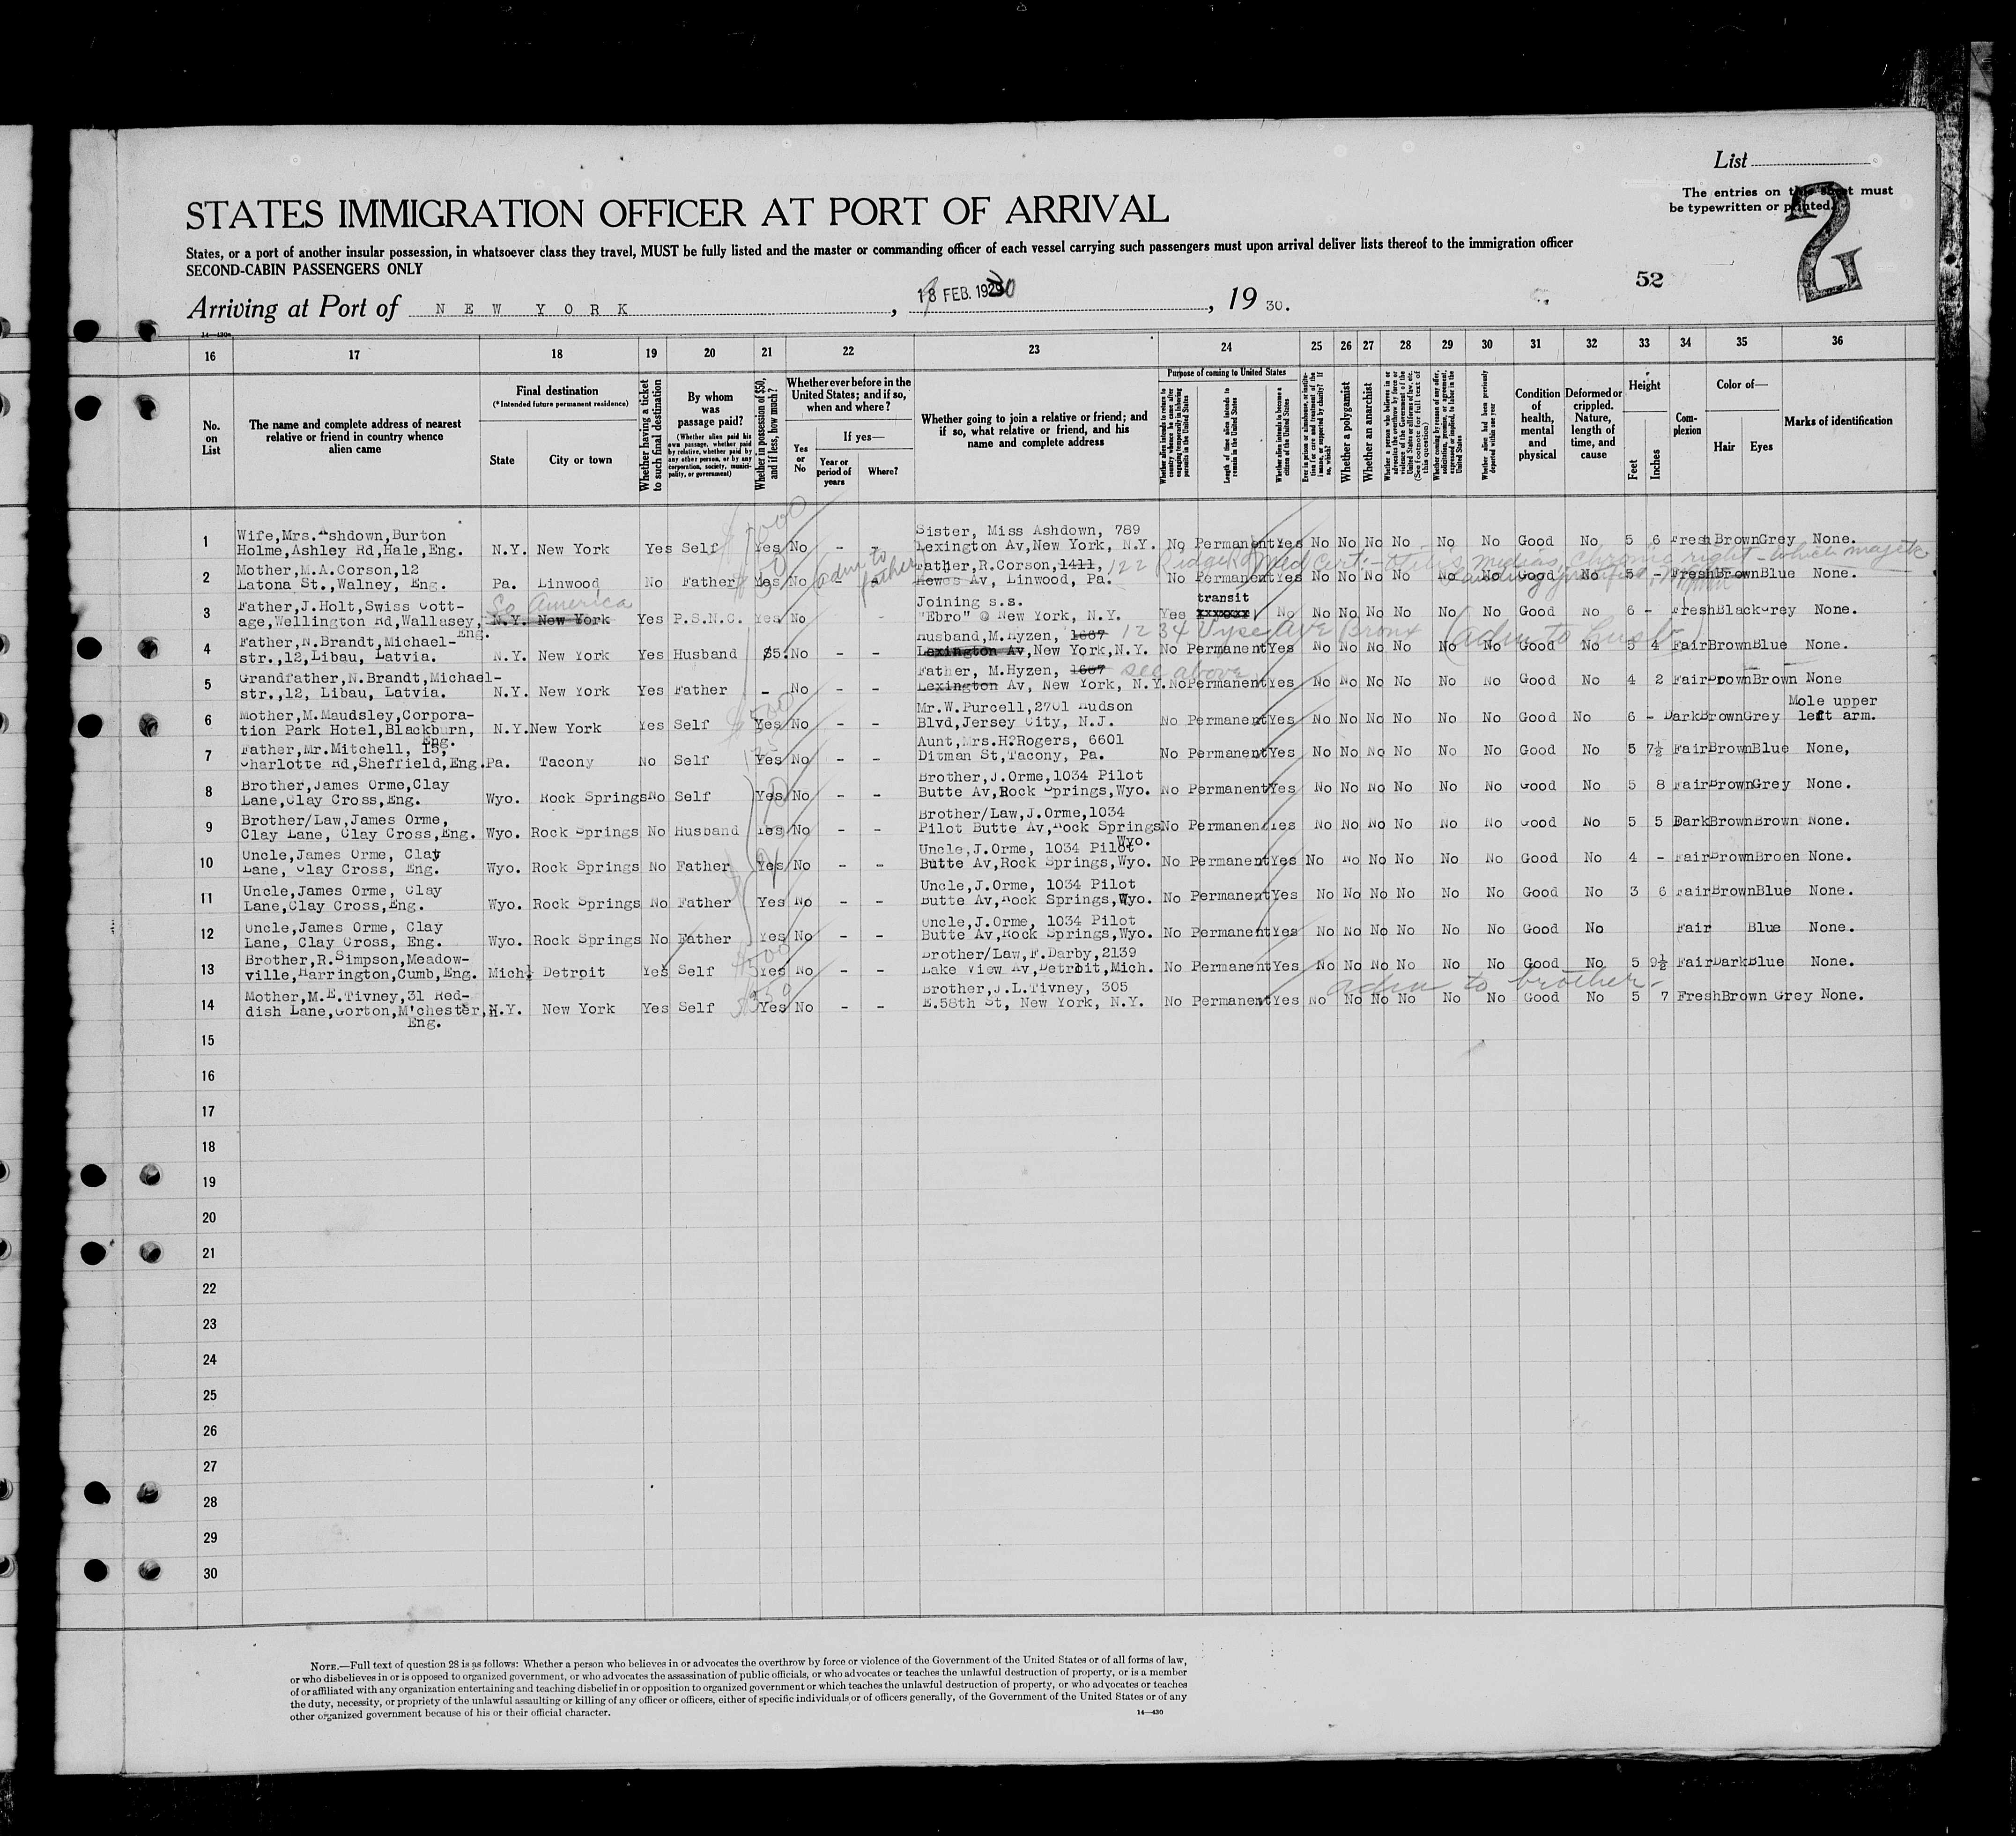 List
The entries on this sheet must
be typewritten or printed.
2
STATES IMMIGRATION OFFICER AT PORT OF ARRIVAL
States, or a port of another insular possession, in whatsoever class they travel, MUST be fully listed and the master or commanding officer of each vessel carrying such passengers must upon arrival deliver lists thereof to the immigration officer
SECOND-CABIN PASSENGERS ONLY
52
Arriving at Port of NEW YORK, 18 FEB. 1930, 19 30.
16 17 18 19 20 21 22 23 24 25 26 27 28 29 30 31 32 33 34 35 36
No. on List
The name and complete address of nearest relative or friend in country whence alien came
Final destination
(*Intended future permanent residence)
State
City or town
Whether having a ticket to such final destination
By whom was passage paid?
(Whether alien paid his own passage, whether paid by relative, whether paid by any other person, or by any corporation, society, municipality, or government)
Whether in possession of $50, and if less, how much?
Whether ever before in the United States; and if so, when and where?
Yes or No
If yes—
Year or period of years
Where?
Whether going to join a relative or friend; and if so, what relative or friend, and his name and complete address
Purpose of coming to United States
Length of time alien intends to remain in the United States
Whether alien intends to become a citizen of the United States
Whether a polygamist
Whether an anarchist
Whether alien had been previously deported within one year
Condition of health, mental and physical
Deformed or crippled. Nature, length of time, and cause
Height
Feet
Inches
Complexion
Color of—
Hair
Eyes
Marks of identification
1 Wife,Mrs.Ashdown,Burton Holme,Ashley Rd,Hale,Eng. N.Y. New York Yes Self Yes No - - Sister, Miss Ashdown, 789 Lexington Av,New York, N.Y. No Permanent Yes No No No No No No Good No 5 6 Fresh Brown Grey None.
2 Mother,M.A.Corson,12 Latona St.,Walney, Eng. Pa. Linwood No Father Yes No adm to father Father,R.Corson,1411, Hewes Av, Linwood, Pa. 122 Ridge Rd No Permanent Yes No No No No No No Good No 5 - Fresh Brown Blue None.
Med Cert:- Otitis Medias, Chronic right - which may
3 Father,J.Holt,Swiss Cottage,Wellington Rd,Wallasey, Eng. N.Y. New York So America Yes P.S.N.C. Yes No - Joining s.s. "Ebro" @ New York, N.Y. Yes transit No No No No No No No Good No 6 - Fresh Black Grey None.
4 Father,N.Brandt,Michael-str.,12,Libau, Latvia. N.Y. New York Yes Husband $5. No - - Husband,M.Hyzen, 1667 Lexington Av,New York,N.Y. 1234 Vyse Ave Bronx (adm to husb) No Permanent Yes No No No No No No Good No 5 4 Fair Brown Blue None.
5 Grandfather,N.Brandt,Michael-str.,12, Libau, Latvia. N.Y. New York Yes Father - No - - Father, M.Hyzen, 1667 Lexington Av, New York, N.Y. see above No Permanent Yes No No No No No No Good No 4 2 Fair Brown Brown None
6 Mother,M.Maudsley,Corporation Park Hotel,Blackburn, Eng. N.Y. New York Yes Self Yes No - - Mr.W.Purcell,2701 Hudson Blvd,Jersey City, N.J. No Permanent Yes No No No No No No Good No 6 - Dark Brown Grey Mole upper left arm.
7 Father,Mr.Mitchell, 15, Charlotte Rd,Sheffield,Eng. Pa. Tacony No Self Yes No - - Aunt,Mrs.H.Rogers, 6601 Ditman St,Tacony, Pa. No Permanent Yes No No No No No No Good No 5 7½ Fair Brown Blue None,
8 Brother,James Orme,Clay Lane,Clay Cross,Eng. Wyo. Rock Springs No Self Yes No - - Brother,J.Orme,1034 Pilot Butte Av,Rock Springs,Wyo. No Permanent Yes No No No No No No Good No 5 8 Fair Brown Grey None.
9 Brother/Law,James Orme, Clay Lane, Clay Cross,Eng. Wyo. Rock Springs No Husband Yes No - - Brother/Law,J.Orme,1034 Pilot Butte Av,Rock Springs Wyo. No Permanent Yes No No No No No No Good No 5 5 Dark Brown Brown None.
10 Uncle,James Orme, Clay Lane, Clay Cross, Eng. Wyo. Rock Springs No Father Yes No - - Uncle,J.Orme, 1034 Pilot Butte Av,Rock Springs, Wyo. No Permanent Yes No No No No No No Good No 4 - Fair Brown Broen None.
11 Uncle,James Orme, Clay Lane,Clay Cross,Eng. Wyo. Rock Springs No Father Yes No - - Uncle,J.Orme, 1034 Pilot Butte Av,Rock Springs,Wyo. No Permanent Yes No No No No No No Good No 3 6 Fair Brown Blue None.
12 Uncle,James Orme, Clay Lane, Clay Cross, Eng. Wyo. Rock Springs No Father Yes No - - Uncle,J.Orme, 1034 Pilot Butte Av,Rock Springs,Wyo. No Permanent Yes No No No No No No Good No Fair Blue None.
13 Brother,R.Simpson,Meadowville,Harrington,Cumb,Eng. Mich. Detroit Yes Self Yes No - - Brother/Law,F.Darby,2139 Lake View Av,Detroit,Mich. No Permanent Yes No No No No No No Good No 5 9½ Fair Dark Blue None.
adm to brother
14 Mother,M.E.Tivney,31 Reddish Lane,Gorton,M'chester, Eng. N.Y. New York Yes Self Yes No - - Brother,J.L.Tivney, 305 E.58th St, New York, N.Y. No Permanent Yes No No No No No No Good No 5 7 Fresh Brown Grey None.
15
16
17
18
19
20
21
22
23
24
25
26
27
28
29
30
NOTE.—Full text of question 28 is as follows: Whether a person who believes in or advocates the overthrow by force or violence of the Government of the United States or of all forms of law,
or who disbelieves in or is opposed to organized government, or who advocates the assassination of public officials, or who advocates or teaches the unlawful destruction of property, or is a member
of or affiliated with any organization entertaining and teaching disbelief in or opposition to organized government or which teaches the unlawful destruction of property, or who advocates or teaches
the duty, necessity, or propriety of the unlawful assaulting or killing of any officer or officers, either of specific individuals or of officers generally, of the Government of the United States or of any
other organized government because of his or their official character.
14—430